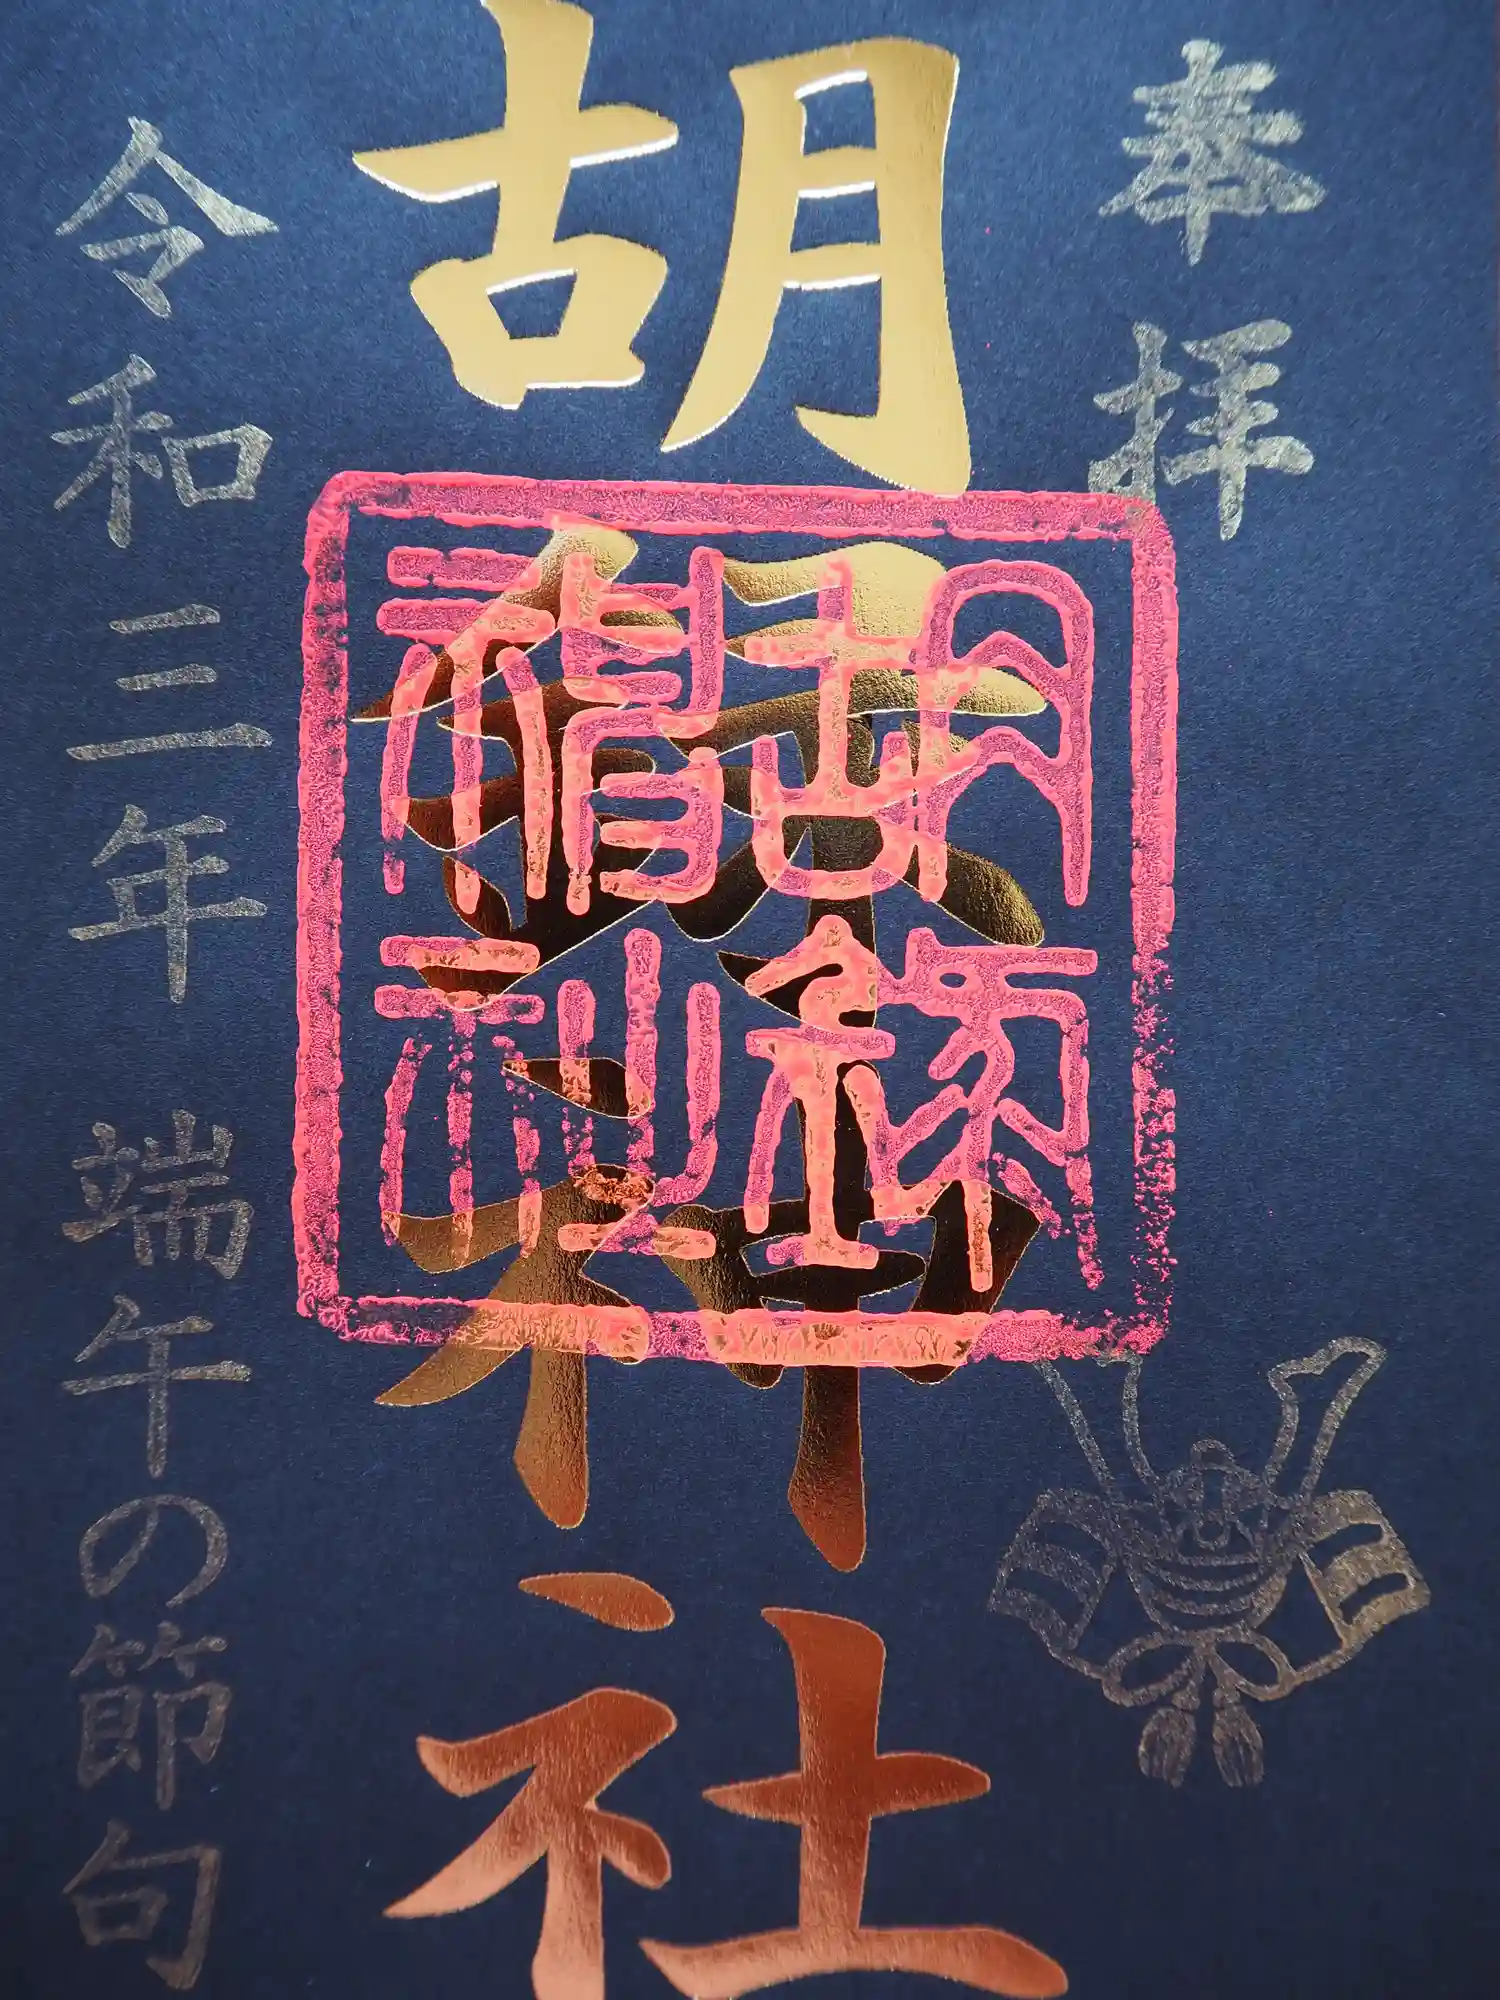 奉拝
胡録神社
胡録
神社
令和三年 端午の節句